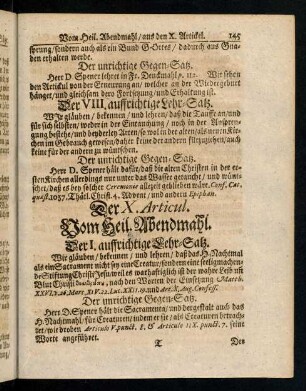 Vom Heil. Abendmahl/ aus den X. Articul. 145
sprung/ sondern auch als ein Bund GOttes/ dadurch aus Gnaden
den erhalten werde.
Der unrichtige Gegen-Satz.
Herr D. Spener lehret in Fr. Denckmahl/ p. Wir sehen
den Articul von der Erneurung an/ welcher an der Wiedergeburt
hänget/ und gleichsam dero Fortsetzung und Erhaltung ist.
Der VIII. auffrichtige Lehr-Satz.
Wir gläuben/ bekennen/ und lehren/ daß die Tauffe an/ und
für sich selbsten/ weder in der Eintauchung/ noch in der Besprengung
bestehe/ und beyderley Arten/ so wol in der alten/ als neuen Kirchen
im Gebrauch gewesen/ daher keine der andern fürzuziehen/ auch
keine für der andern zu wünschen.
Der unrichtige Gegen-Satz.
Herr D. Spener hält dafür/ daß die alten Christen in der ersten
Kirchen allerdings nur unter das Wasser getaucht/ und wünschet/
daß es bey solcher Ceremonie allezeit geblieben wäre. Conf. Cat.
1057. Thätl. Christ. 4. Advent/ und andere
Der X. Articul.
Vom Heil. Abendmahl.
Der I. auffrichtige Lehr-Satz.
Wir gläuben/ bekennen/ und lehren/ daß das H. Nachtmal
als ein Sacrament nicht sey eine Creatur/ sondern eine seeligmachende
Stifftung Christi JEsu/ weil es warhafftig ist der wahre Leib und
Blut Christi nach den Worten der Einsetzung Matth.
XXVI. Marc. XIV. 22. Luc. XXII. 19. und Art. X. Aug. Confess.
Der unrichtige Gegen-Satz.
Herr D. Spener hält die Sacramenten/ und dergestalt auch das
H. Nachtmahl/ für Creaturen/ indem er sie/ als Creaturen betrachtet/
wie droben Articulo V. punct. 8. & Articulo IIX. punct. 7. seine
Worte angeführet.
T Der